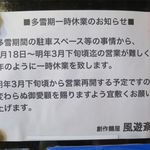 ■多雪期一時休業のお知らせ■
多雪期間の駐車スペース等の事情から、
月18日～明年3月下旬頃迄の営業が難しく
年のように一時休業を致します。
明年3月下旬頃から営業再開する予定ですので
変わらぬ御愛顧を賜りますよう宜敷くお願い
上げます。
創作麺屋 風遊斎